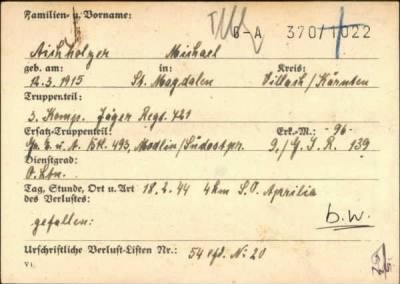 Familien- u. Vorname:
G-A 370/1022
Aichholzer Michael
geb. am: in: Kreis:
12.3.1915 St. Magdalen Villach/Kärnten
Truppenteil:
3. Komp. Jäger Regt. 721
Ersatz-Truppenteil: Erk.-M.: -96-
Gr. E. u. A. Btl. 493, Modlin/Südostpr. 9./G.J.R. 139
Dienstgrad:
O.Ltn.
Tag, Stunde, Ort u. Art 18.2.44 4km S.O. Aprilia
des Verlustes:
gefallen: b.w.
Urschriftliche Verlust-Listen Nr.: 54 Nr. 20
V 1.